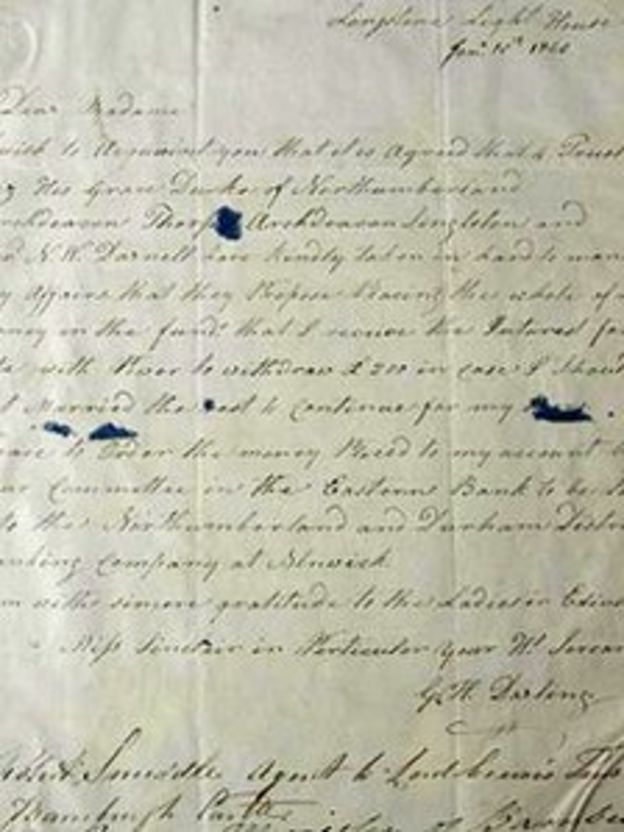 Longstone Light House
Jan. 10th 1840
Dear Madame
wish to Acquaint you that it is Agreed that a Trust
His Grace Duke of Northumberland
Archdeacon Thorp Archdeacon Singleton and
N.W. Darnell have kindly taken in hand to
Affairs that they Propose Placing the whole of
money in the funds that I receive the Interest for
with Power to withdrew £ 200 in case I should
Married the rest to continue for my
to Order the money Placed to my account
Committee in the Eastern Bank to be
to the Northumberland and Durham District
Banking Company at Alnwick
with sincere gratitude to the Ladies in
Miss Sinclair in Particular your
G. H. Darling
Smeddle Agent to Lord Crewe's
Bamburgh Castle
of